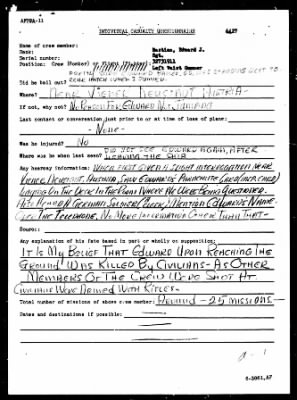 AFPPA-11
INDIVIDUAL CASUALTY QUESTIONNAIRE
Name of crew member:
Rank:
Serial number:
Position: Crew (Bomber)
Edward J.
Sgt.
Left Waist Gunner
Did he bail out?
REAR HATCH
Where? NEAR WIENER NEUSTADT AUSTRIA
If not, why not?
Last contact or conversation just prior to or at time of loss of plane:
- NONE -
Was he injured? NO
Where was he when last seen? DID NOT SEE EDWARD AGAIN, AFTER
LEAVING THE SHIP
Any hearsay information: WHEN FIRST GIVEN A SLIGHT INTERROGATION NEAR
WIENER NEUSTADT, AUSTRIA, SAW EDWARD'S PARACHUTE CARD
LAYING ON THE DESK IN THE ROOM WHERE WE WERE BEING QUESTIONED.
ALSO HEARD A GERMAN SOLDIER MENTION EDWARD'S NAME
OVER THE TELEPHONE. NO MORE INFORMATION OTHER THAN THAT -
Source:
Any explanation of his fate based in part or wholly on supposition:
IT IS MY BELIEF THAT EDWARD UPON REACHING THE
GROUND WAS KILLED BY CIVILIANS - AS OTHER
MEMBERS OF THE CREW WERE SHOT AT
CIVILIANS WERE ARMED WITH RIFLES -
Total number of missions of above crew member: AROUND - 25 MISSIONS -
Dates and destinations if possible:
6-3861,AF